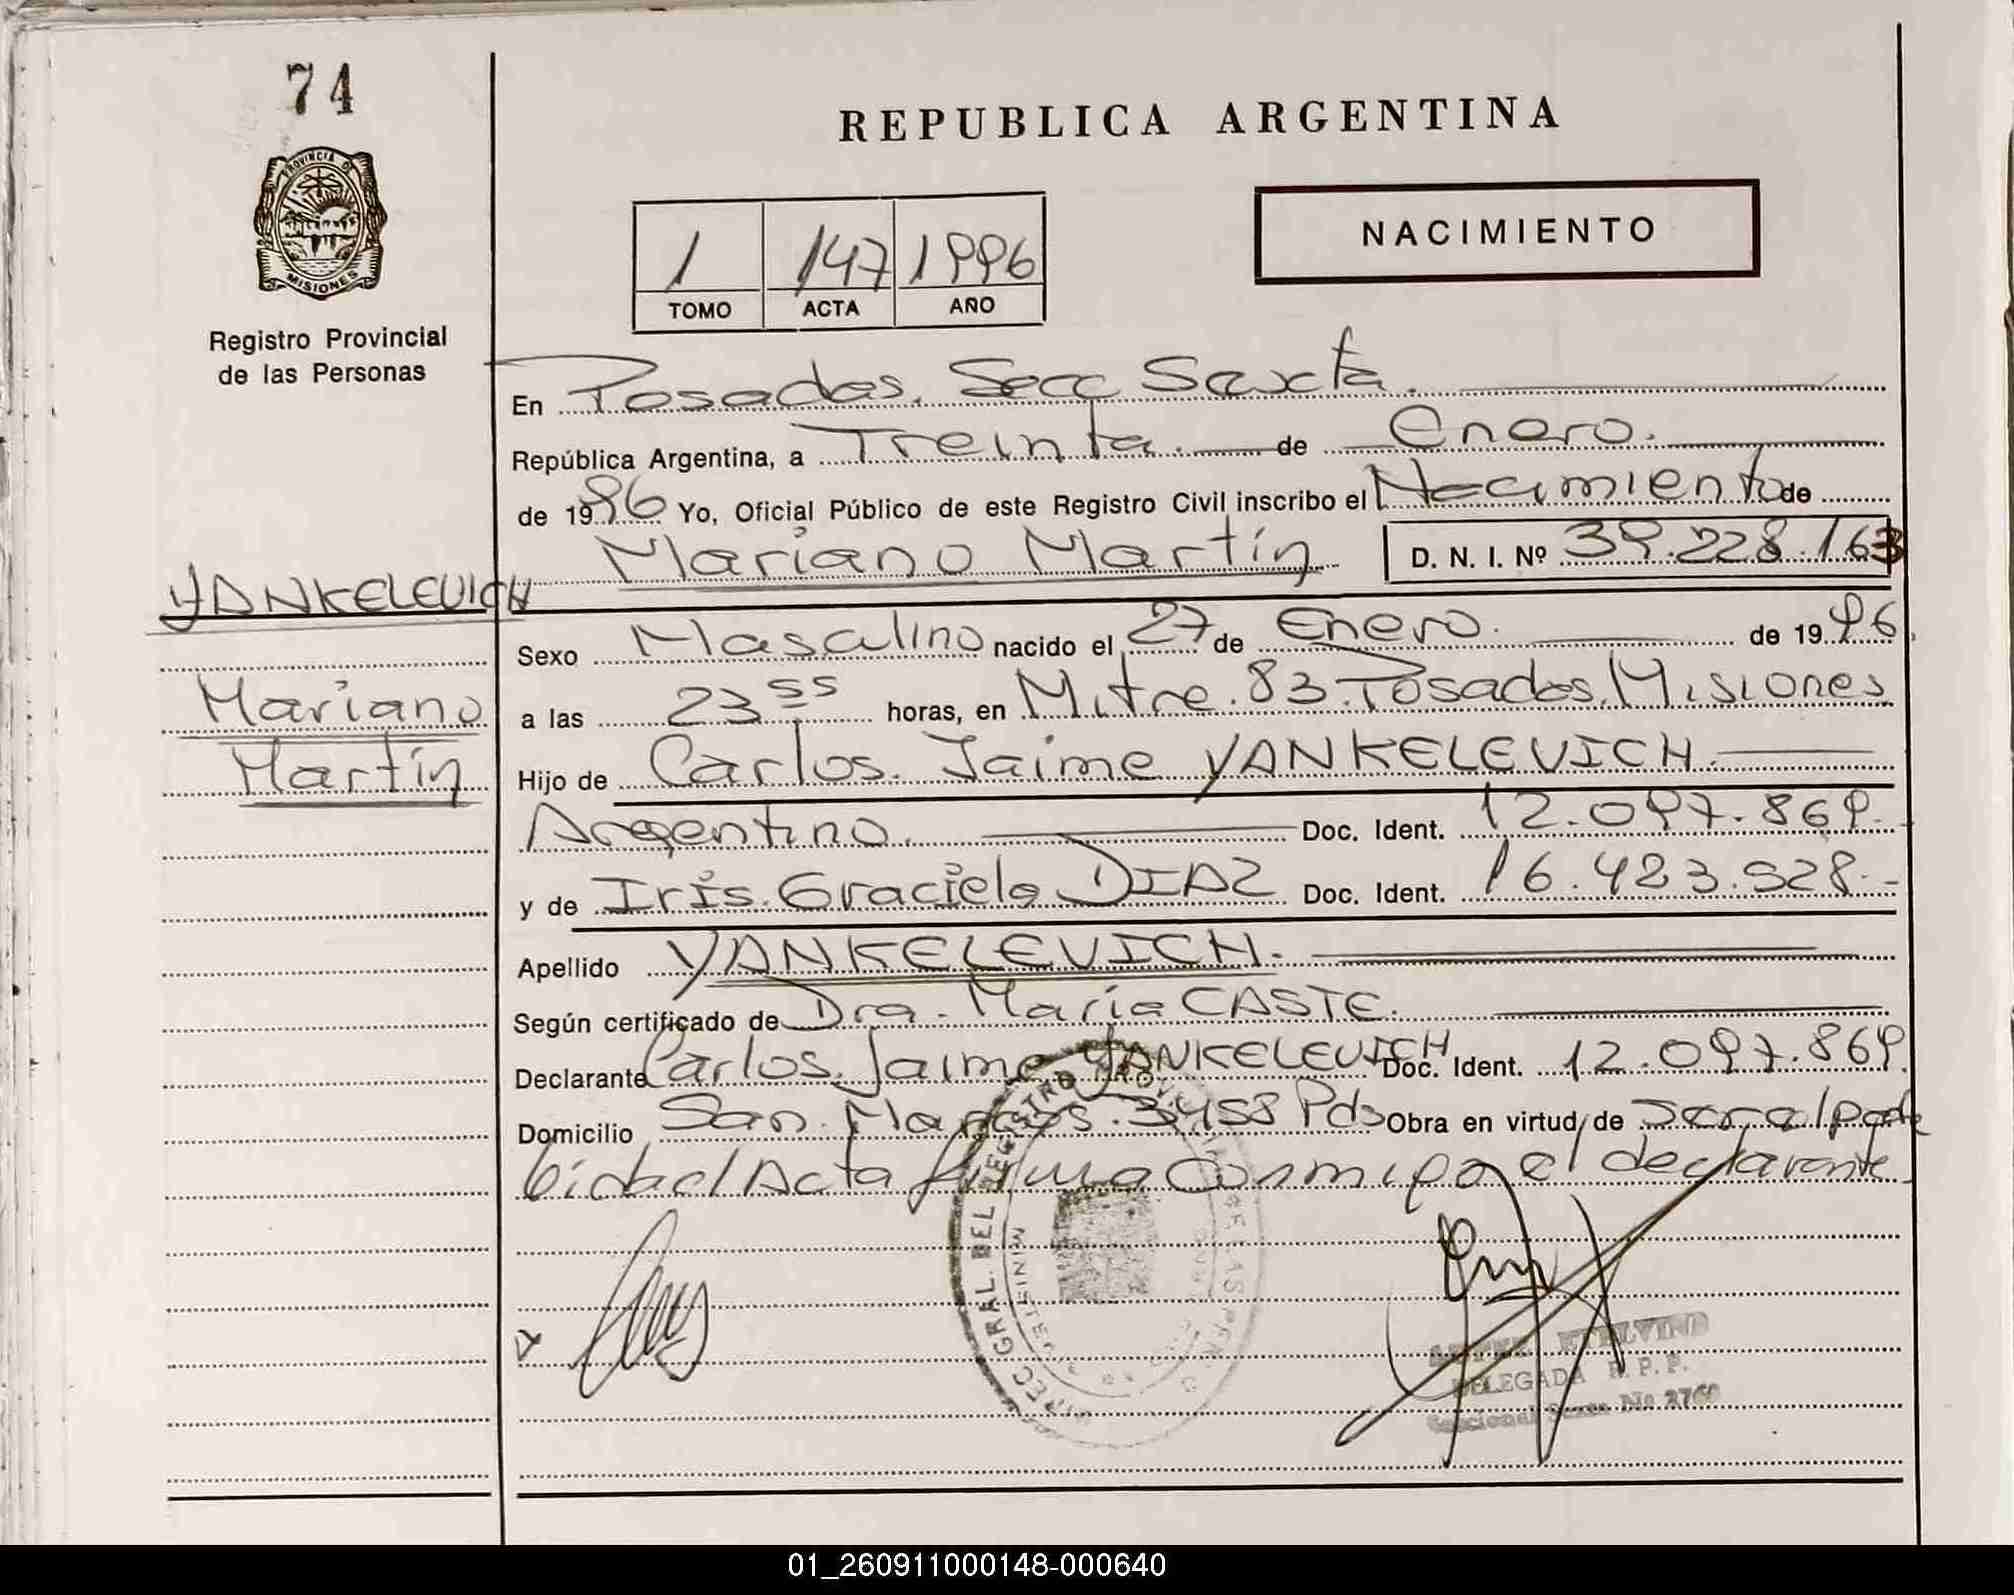 74
PROVINCIA DE
MISIONES
Registro Provincial
de las Personas
REPUBLICA ARGENTINA
NACIMIENTO
1 147 1996
TOMO ACTA AÑO
En Posadas. Secc Sexta.
República Argentina, a Treinta. de Enero.
de 1996 Yo, Oficial Público de este Registro Civil inscribo el Nacimiento de
Mariano Martín D. N. I. Nº 39.228.163
YANKELEVICH
Mariano
Martín
Sexo Masculino nacido el 27 de Enero. de 1996.
a las 23 55 horas, en Mitre. 83. Posadas. Misiones
Hijo de Carlos. Jaime YANKELEVICH.
Argentino. Doc. Ident. 12.097.869.
y de Iris. Graciela DIAZ Doc. Ident. 16.483.528.-
Apellido YANKELEVICH.
Según certificado de Dra. María CASTE.
Declarante Carlos. Jaime YANKELEVICH Doc. Ident. 12.097.869.
Domicilio San. Marcos. 3458 Pds Obra en virtud de
Acta firma conmigo el declarante
DIREC GRAL. DEL REGISTRO
DELEGADA R. P. P.
Seccional Sexta No 2760
01_260911000148-000640